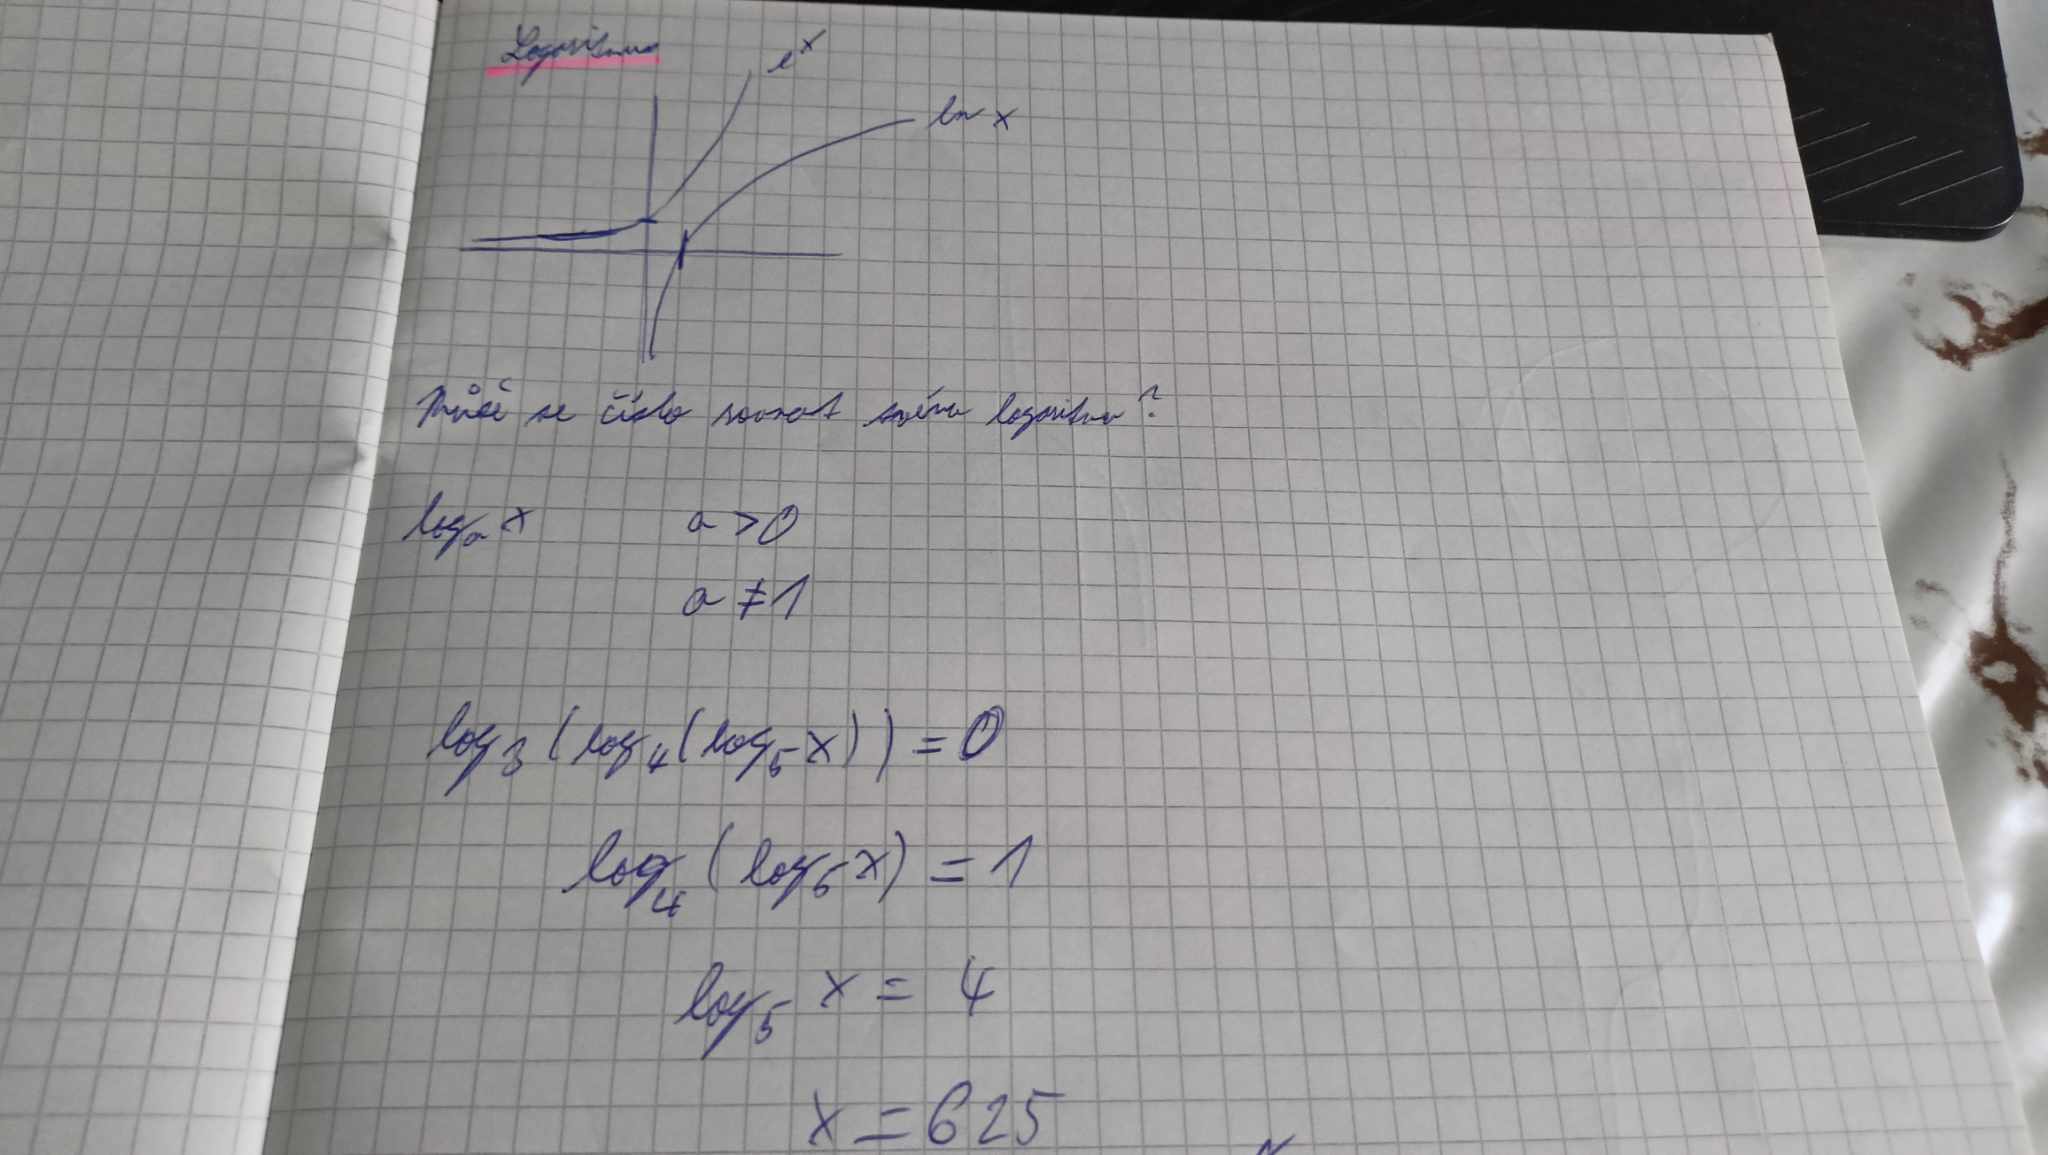 Logaritmus
e^x
ln x
Může se číslo rovnat svému logaritmu?
log_a x a > 0
a ≠ 1
log_3 (log_4 (log_5 x)) = 0
log_4 (log_5 x) = 1
log_5 x = 4
x = 625